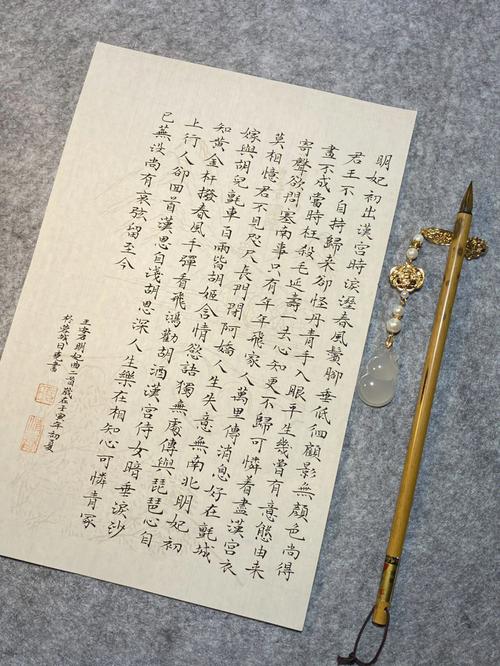 明妃初出漢宮時淚溼春風鬢腳垂低佪顧影無顏色尚得
君王不自持歸來卻怪丹青手入眼平生幾曾有意態由來
畫不成當時枉殺毛延壽一去心知更不歸可憐着盡漢宮衣
寄聲欲問塞南事只有年年飛家人萬里傳消息好在氈城
莫相憶君不見咫尺長門閉阿嬌人生失意無南北明妃初
嫁與胡兒氈車百兩皆胡姬含情慾語獨無處傳與琵琶心自
知黃金杆撥春風手彈看飛鴻勸胡酒漢宮侍女暗垂淚沙
上行人卻回首漢恩自淺胡恩深人生樂在相知心可憐青冢
已蕪沒尚有哀弦留至今
王安石明妃曲二首歲在壬寅年初夏
於蓉城日書